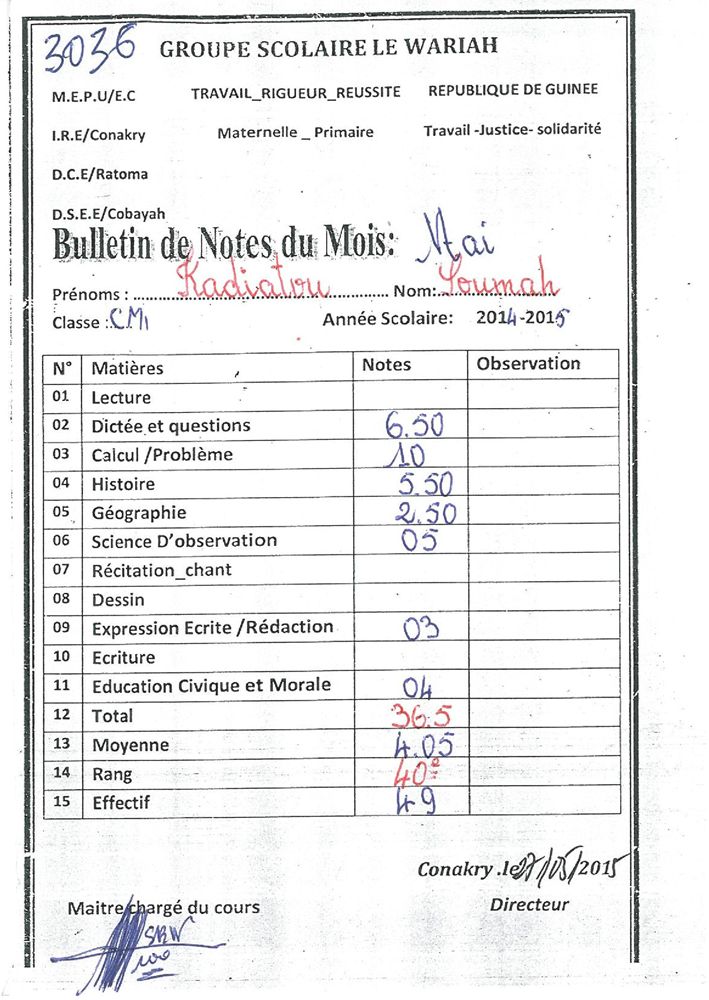 3036 GROUPE SCOLAIRE LE WARIAH
M.E.P.U/E.C TRAVAIL_RIGUEUR_REUSSITE REPUBLIQUE DE GUINEE
I.R.E/Conakry Maternelle _ Primaire Travail -Justice- solidarité
D.C.E/Ratoma
D.S.E.E/Cobayah
Bulletin de Notes du Mois: Mai
Prénoms : Kadiatou Nom: Soumah
Classe : CM1 Année Scolaire: 2014-2015
N° Matières Notes Observation
01 Lecture
02 Dictée et questions 6.50
03 Calcul /Problème 10
04 Histoire 5.50
05 Géographie 2.50
06 Science D'observation 05
07 Récitation_chant
08 Dessin
09 Expression Ecrite /Rédaction 03
10 Ecriture
11 Education Civique et Morale 04
12 Total 36.5
13 Moyenne 4.05
14 Rang 40e
15 Effectif 49
Conakry .le 27/05/2015
Maitre chargé du cours Directeur